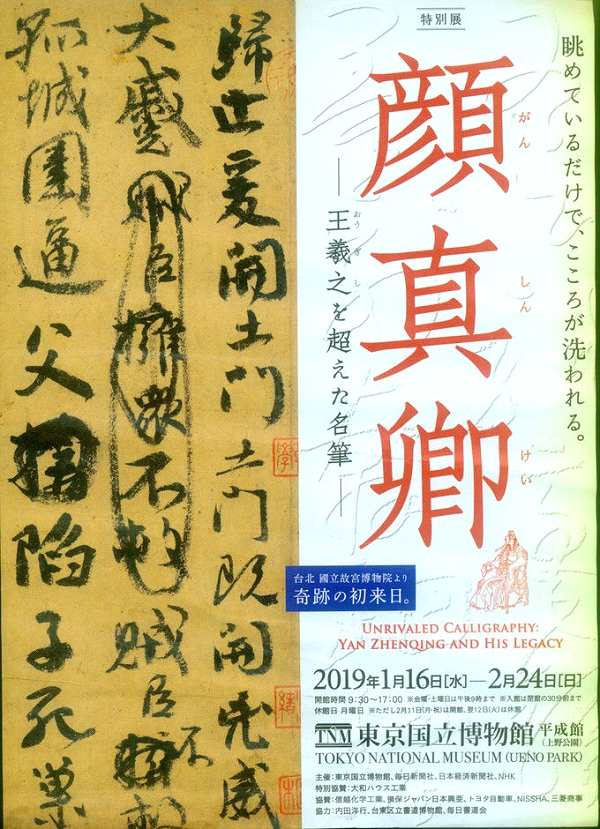 特別展
眺めているだけで、こころが洗われる。
顔真卿
がん しん けい
―王羲之を超えた名筆―
おう ぎ し
歸止爰開土門土門既開兇威
大蹙賊臣擁衆不救賊臣不救
孤城圍逼父陷子死巢
台北 國立故宮博物院より
奇跡の初来日。
UNRIVALED CALLIGRAPHY:
YAN ZHENQING AND HIS LEGACY
2019年1月16日[水]―2月24日[日]
開館時間 9:30〜17:00 ※金曜・土曜日は午後9時まで ※入館は閉館の30分前まで
休館日 月曜日 ※ただし2月11日(月・祝)は開館、翌12日(火)は休館
TNM 東京国立博物館 平成館
(上野公園)
TOKYO NATIONAL MUSEUM (UENO PARK)
主催:東京国立博物館、毎日新聞社、日本経済新聞社、NHK
特別協賛:大和ハウス工業
協賛:信越化学工業、損保ジャパン日本興亜、トヨタ自動車、NISSHA、三菱商事
協力:内田洋行、台東区立書道博物館、毎日書道会